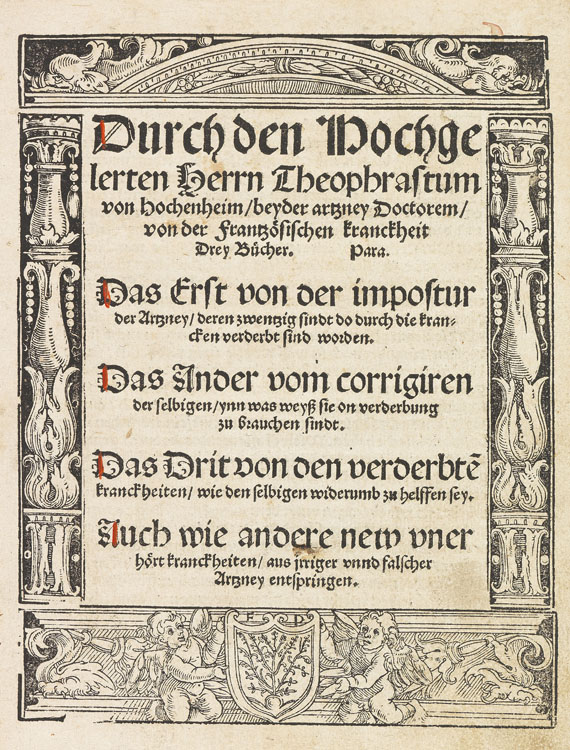 Durch den Hochge
lerten Herrn Theophrastum
von Hochenheim/beyder artzney Doctorem/
von der Frantzösischen kranckheit
Drey Bücher. Para.
Das Erst von der impostur
der Artzney/deren zwentzig sindt do durch die kran-
cken verderbt sind worden.
Das Ander vom corrigiren
der selbigen/ynn was weyß sie on verderbung
zu brauchen sindt.
Das Drit von den verderbtē
kranckheiten/wie den selbigen widerumb zu helffen sey.
Auch wie andere new vner
hört kranckheiten/aus jrriger vnnd falscher
Artzney entspringen.
F P